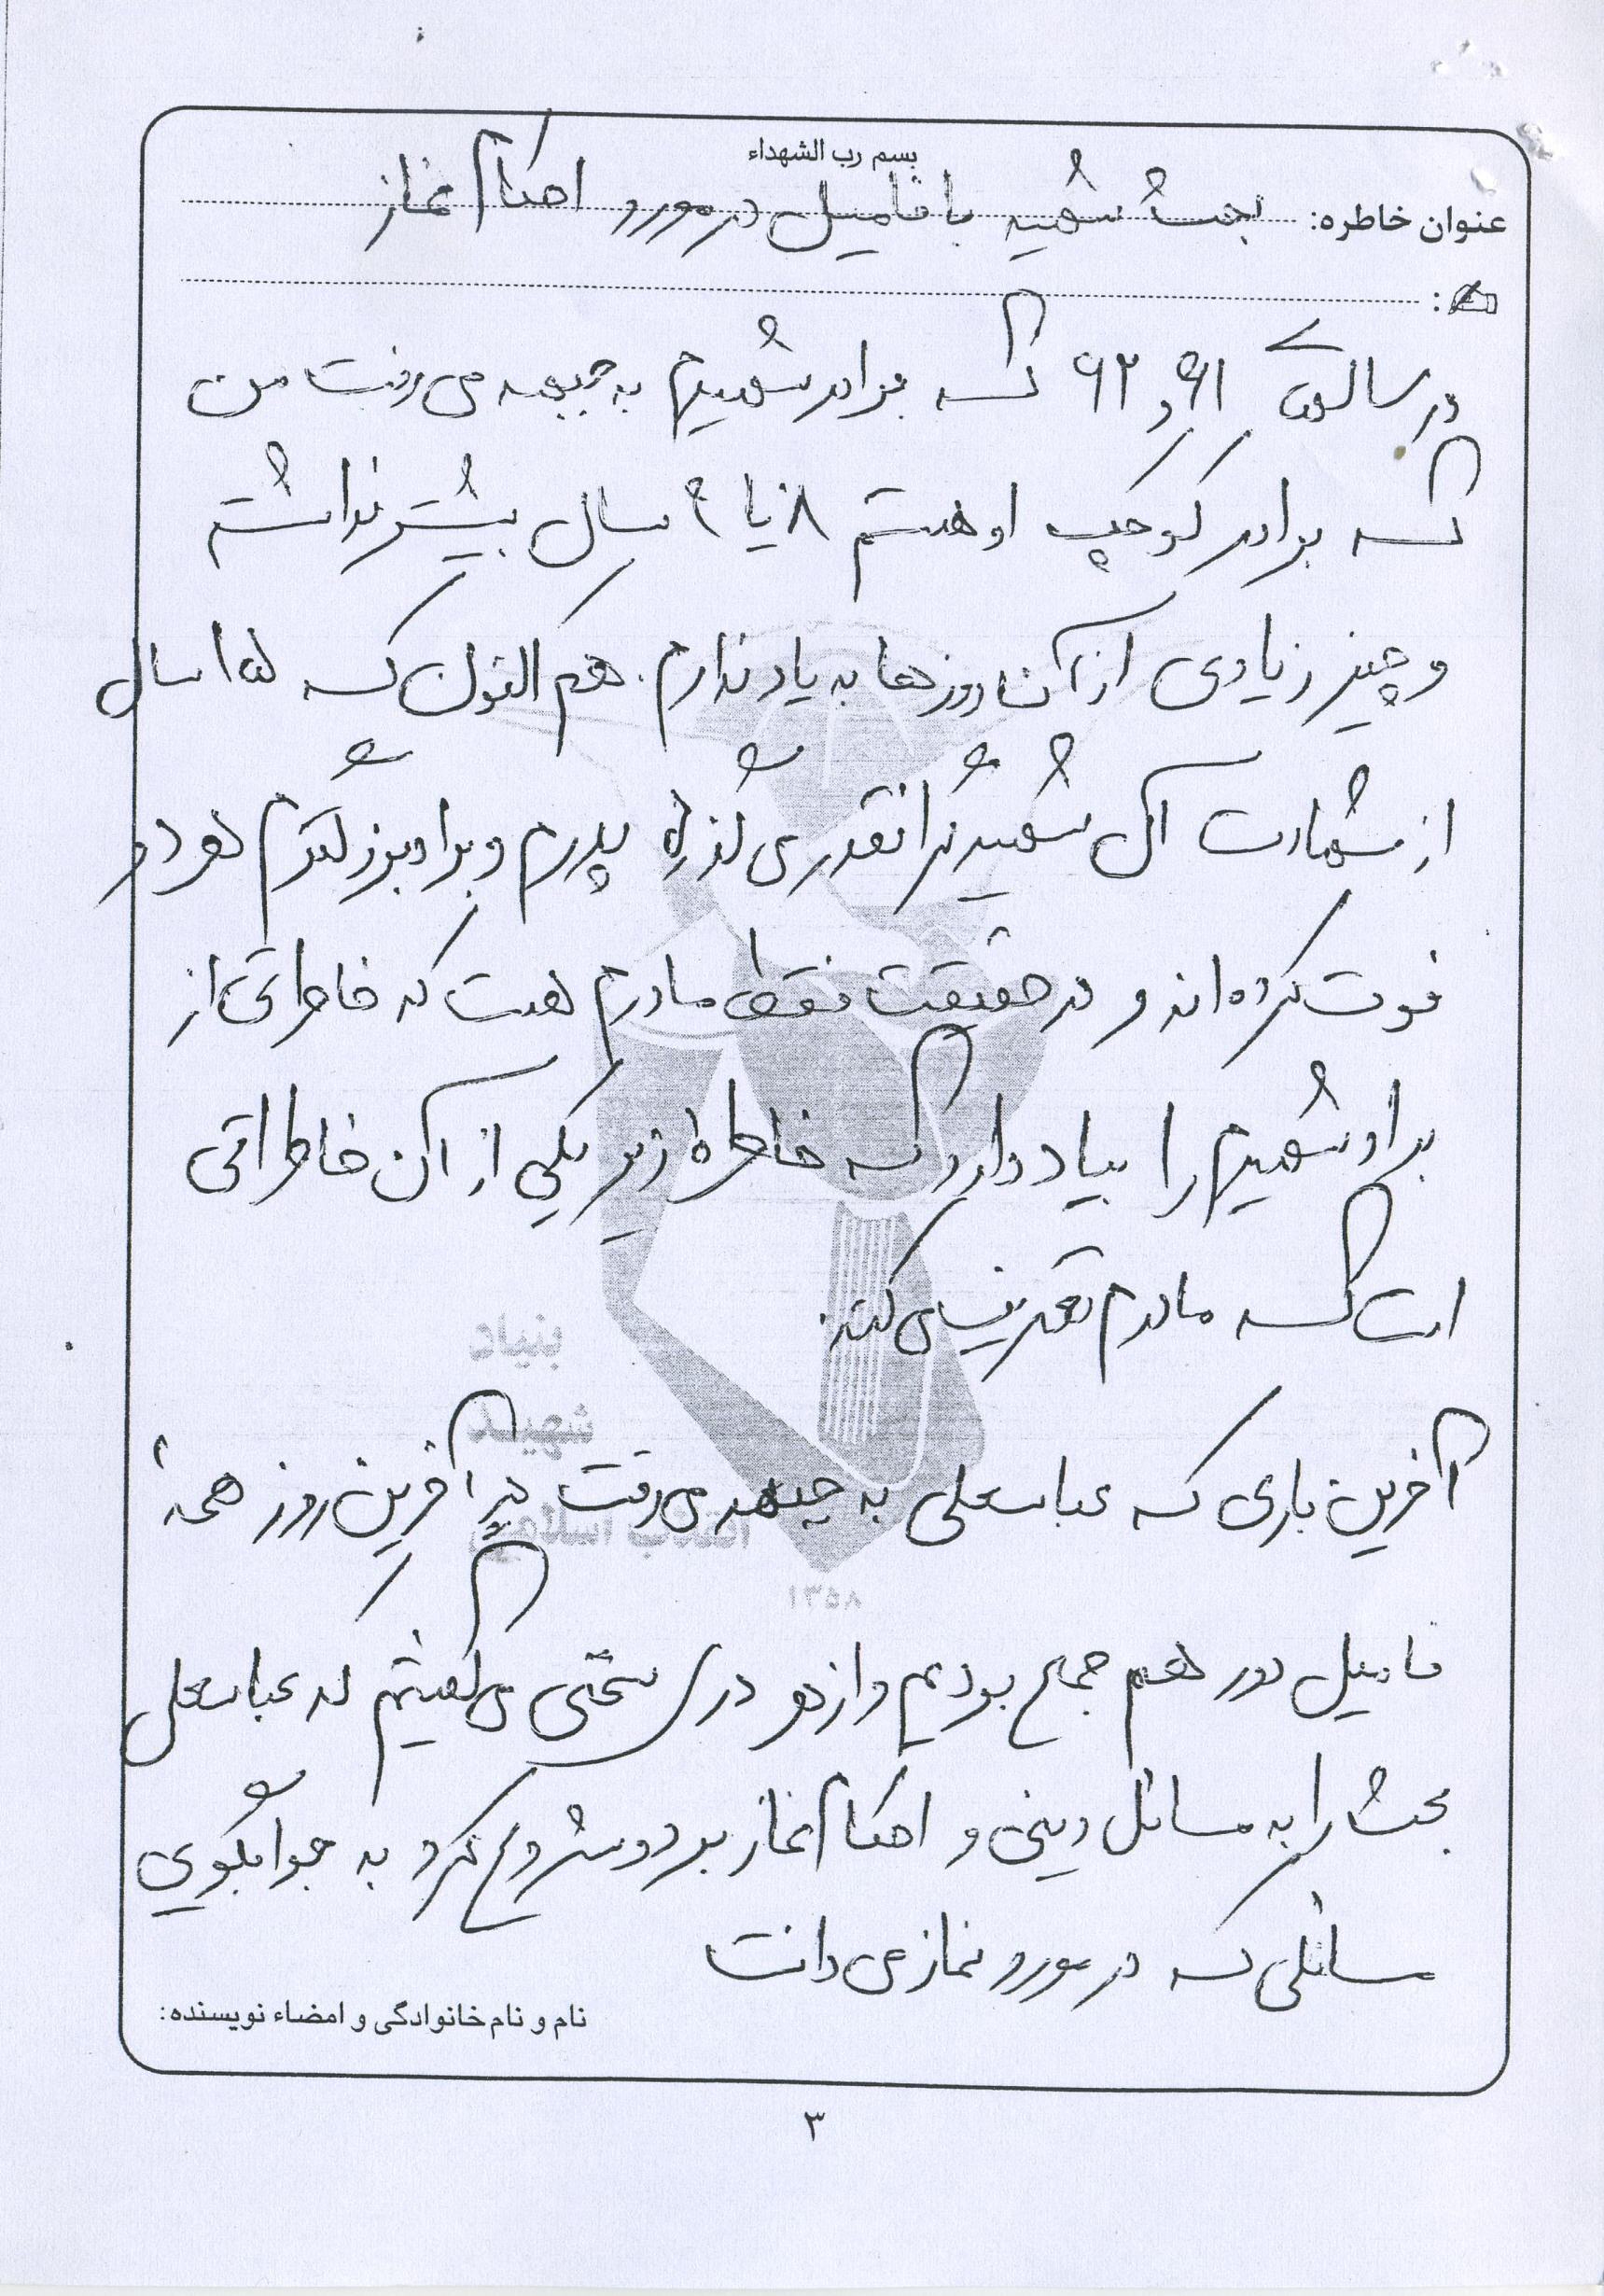 بسم رب الشهداء
عنوان خاطره: بحث شهید با فامیل در مورد احکام نماز
در سالهای ۶۱ و ۶۲ که برادر شهیدم به جبهه می رفت من
که برادر کوچک او هستم ۸ یا ۹ سال بیشتر نداشته
و چیز زیادی از آن روزها به یاد ندارم. هم اکنون که ۱۵ سال
از شهادت آن شهید گرانقدر می گذرد پدرم و برادر بزرگترم هر دو
فوت کرده اند و در حقیقت فقط مادرم هست که خاطراتی از
برادر شهیدم را بیاد دارد که خاطره زیر یکی از آن خاطراتی
است که مادرم تعریف می کند.
آخرین باری که عباسعلی به جبهه می رفت در آخرین روز همه
فامیل دور هم جمع بودیم و از هر دری سخنی می گفتیم که عباسعلی
بحث را به مسائل دینی و احکام نماز برد و شروع کرد به جوابگویی
مسائلی که در مورد نماز می دانست
نام و نام خانوادگی و امضاء نویسنده:
بنیاد
شهید
انقلاب اسلامی
۱۳۵۸
۳